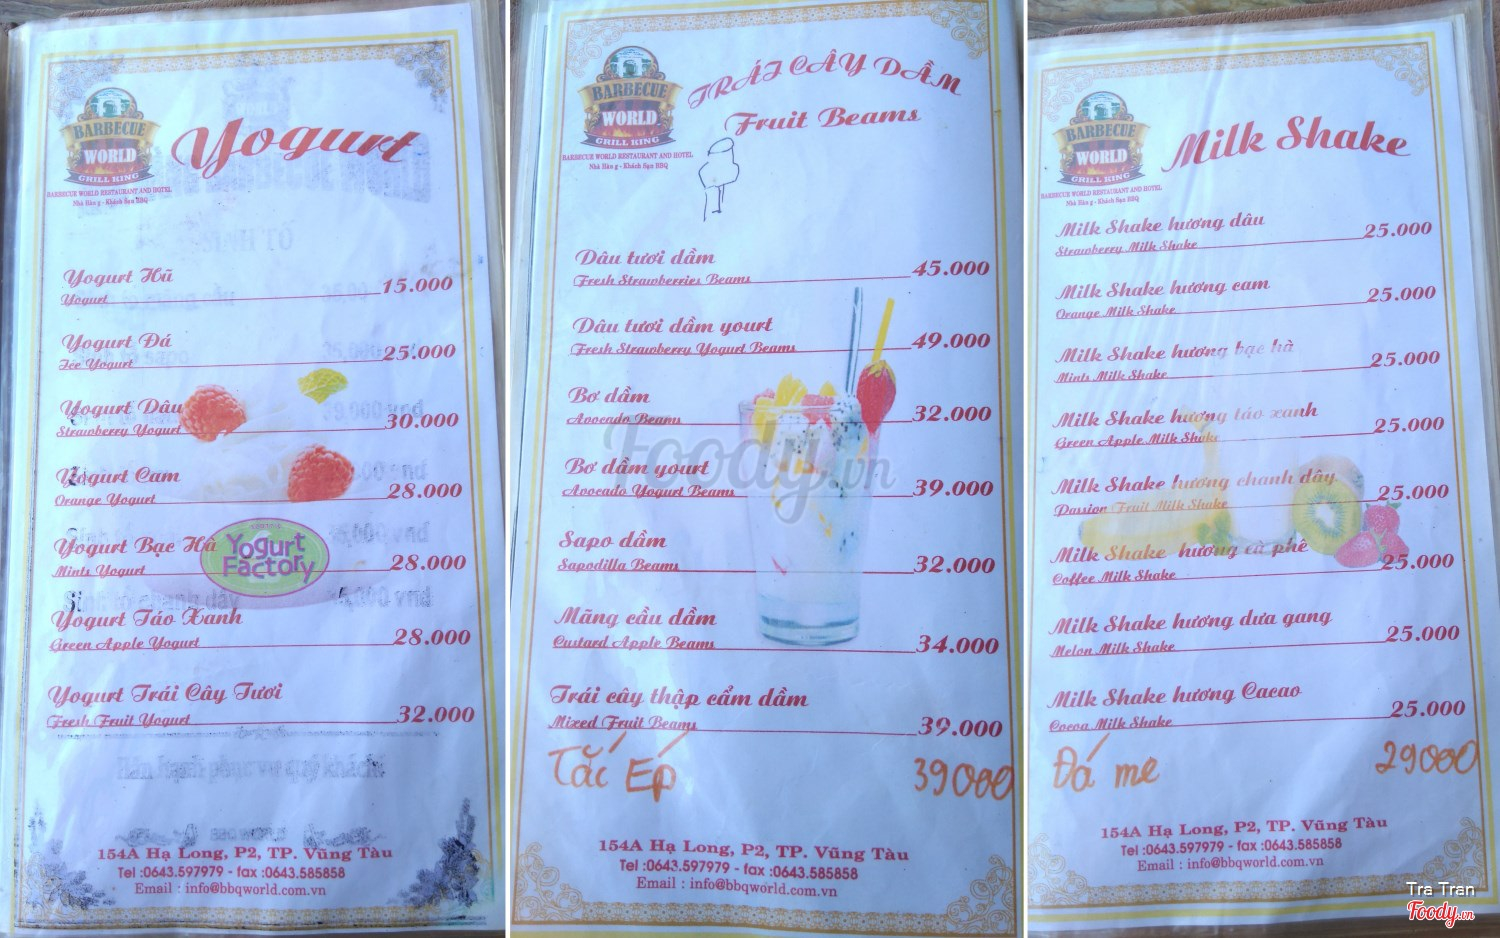 BARBECUE
WORLD
GRILL KING
BARBECUE WORLD RESTAURANT AND HOTEL
Nhà Hàng - Khách Sạn BBQ
Yogurt
Yogurt Hũ
Yogurt 15.000
Yogurt Đá
Ice Yogurt 25.000
Yogurt Dâu
Strawberry Yogurt 30.000
Yogurt Cam
Orange Yogurt 28.000
Yogurt Bạc Hà
Mints Yogurt 28.000
Yogurt Factory
Yogurt Táo Xanh
Green Apple Yogurt 28.000
Yogurt Trái Cây Tươi
Fresh Fruit Yogurt 32.000
154A Hạ Long, P2, TP. Vũng Tàu
Tel :0643.597979 - fax :0643.585858
Email : info@bbqworld.com.vn
BARBECUE
WORLD
GRILL KING
BARBECUE WORLD RESTAURANT AND HOTEL
Nhà Hàng - Khách Sạn BBQ
TRÁI CÂY DẦM
Fruit Beams
Dâu tươi dầm
Fresh Strawberries Beams 45.000
Dâu tươi dầm yourt
Fresh Strawberry Yogurt Beams 49.000
Bơ dầm
Avocado Beams 32.000
Bơ dầm yourt
Avocado Yogurt Beams 39.000
Sapo dầm
Sapodilla Beams 32.000
Mãng cầu dầm
Custard Apple Beams 34.000
Trái cây thập cẩm dầm
Mixed Fruit Beams 39.000
Tắc Ép 39000
154A Hạ Long, P2, TP. Vũng Tàu
Tel :0643.597979 - fax :0643.585858
Email : info@bbqworld.com.vn
Foody.vn
BARBECUE
WORLD
GRILL KING
BARBECUE WORLD RESTAURANT AND HOTEL
Nhà Hàng - Khách Sạn BBQ
Milk Shake
Milk Shake hương dâu
Strawberry Milk Shake 25.000
Milk Shake hương cam
Orange Milk Shake 25.000
Milk Shake hương bạc hà
Mints Milk Shake 25.000
Milk Shake hương táo xanh
Green Apple Milk Shake 25.000
Milk Shake hương chanh dây
Passion Fruit Milk Shake 25.000
Milk Shake hương cà phê
Coffee Milk Shake 25.000
Milk Shake hương dưa gang
Melon Milk Shake 25.000
Milk Shake hương Cacao
Cocoa Milk Shake 25.000
Đá me 29000
154A Hạ Long, P2, TP. Vũng Tàu
Tel :0643.597979 - fax :0643.585858
Email : info@bbqworld.com.vn
Tra Tran
Foody.vn